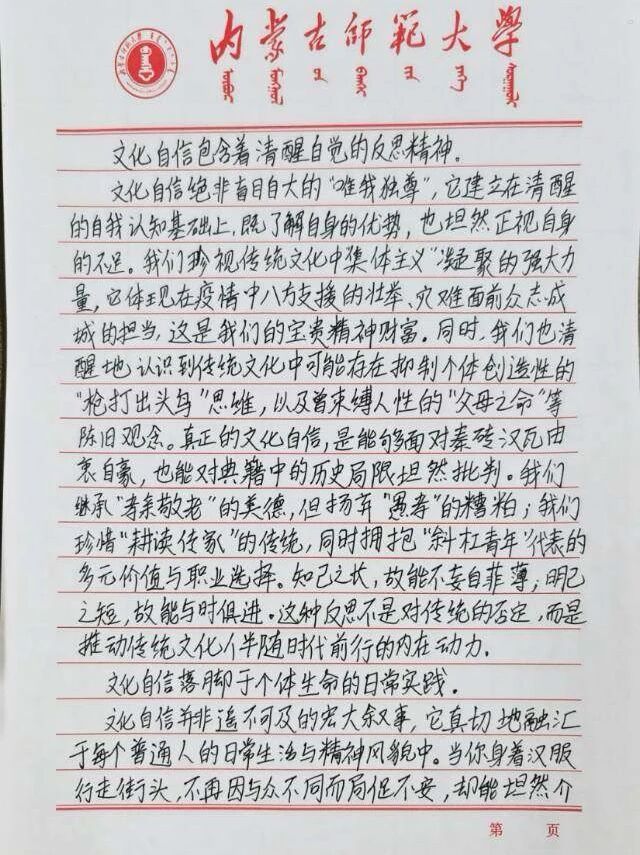 内蒙古师范大学
文化自信包含着清醒自觉的反思精神。
文化自信绝非盲目自大的“唯我独尊”，它建立在清醒
的自我认知基础上，既了解自身的优势，也坦然正视自身
的不足。我们珍视传统文化中集体主义”凝聚的强大力
量，它体现在疫情中八方支援的壮举、灾难面前众志成
城的担当，这是我们的宝贵精神财富。同时，我们也清
醒地认识到传统文化中可能存在抑制个体创造性的
“枪打出头鸟”思维，以及曾束缚人性的“父母之命”等
陈旧观念。真正的文化自信，是能够面对秦砖汉瓦由
衷自豪，也能对典籍中的历史局限坦然批判。我们
继承“孝亲敬老”的美德，但扬弃“愚孝”的糟粕；我们
珍惜“耕读传家”的传统，同时拥抱“斜杠青年”代表的
多元价值与职业选择。知己之长，故能不妄自菲薄；明己
之短，故能与时俱进。这种反思不是对传统的否定，而是
推动传统文化伴随时代前行的内在动力。
文化自信落脚于个体生命的日常实践。
文化自信并非遥不可及的宏大叙事，它真切地融汇
于每个普通人的日常生活与精神风貌中。当你身着汉服
行走街头，不再因与众不同而局促不安，却能坦然介
第 页